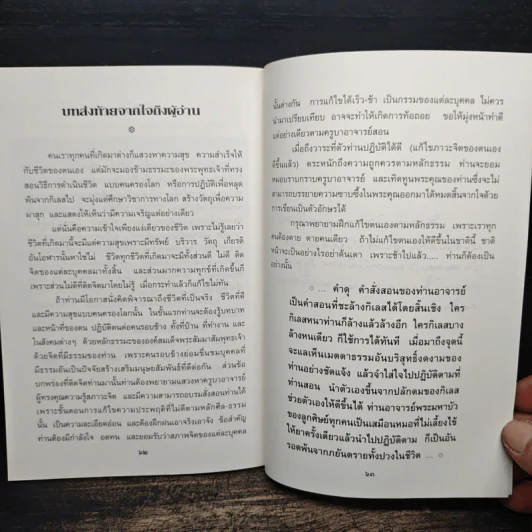 บทส่งท้ายจากใจถึงผู้อ่าน
คนเราทุกคนที่เกิดมาต่างก็แสวงหาความสุข ความสำเร็จให้
กับชีวิตของตนเอง แต่มักจะมองข้ามธรรมะของพระพุทธเจ้าที่ทรง
สอนวิธีการดำเนินชีวิต แบบคนครองโลก หรือการปฏิบัติเพื่อหลุด
พ้นจากกิเลสไป จะมุ่งแต่ศึกษาวิชาการทางโลก สร้างวัตถุเพื่อความ
ผาสุก และแสดงให้เห็นว่ามีความเจริญแต่อย่างเดียว
แต่นั่นคือความเข้าใจเพียงแง่เดียวของชีวิต เพราะไม่รู้เลยว่า
ชีวิตที่เกิดมานี้จะมีแต่ความสุขเพราะมีทรัพย์ บริวาร วัตถุ เกียรติ
อันโอฬารนั้นหาใช่ไม่ ชีวิตทุกชีวิตที่เกิดมาจะมีทั้งส่วนดี ไม่ดี ติด
จิตของแต่ละบุคคลมาทั้งสิ้น และส่วนมากความทุกข์ที่เกิดขึ้นก็
เพราะส่วนไม่ดีที่ติดจิตมาโดยไม่รู้ เมื่อกระทำแล้วก็แก้ไขไม่ทัน
ถ้าท่านมีโอกาสนั่งคิดพิจารณาถึงชีวิตที่เป็นจริง ชีวิตที่ดี
และมีความสุขแบบคนครองโลกนั้น ในขั้นแรกท่านจะต้องรู้บทบาท
และหน้าที่ของตน ปฏิบัติตนต่อคนรอบข้าง ทั้งที่บ้าน ที่ทำงาน และ
ในสังคมต่างๆ ด้วยหลักธรรมะขององค์สมเด็จพระสัมมาสัมพุทธเจ้า
ด้วยจิตที่มีธรรมของท่าน เพราะคนรอบข้างย่อมชื่นชมบุคคลที่
มีธรรมะอันเป็นปัจจัยสร้างเสริมมนุษยสัมพันธ์ที่ดีต่อกัน ส่วนข้อ
บกพร่องที่ติดจิตท่านมานั้นท่านต้องพยายามแสวงหาครูบาอาจารย์
ผู้ทรงคุณความรู้สภาวะจิต และมีความสามารถอบรมสั่งสอนท่านได้
เพราะขั้นตอนการแก้ไขความประพฤติที่ไม่ดีตามหลักศีล-ธรรม
นั้น เป็นความละเอียดอ่อน และต้องฝึกฝนเอาจริงเอาจัง ข้อสำคัญ
ท่านต้องมีกำลังใจ อดทน และยอมรับว่าสภาพจิตของแต่ละบุคคล
๖๒
นั้นต่างกัน การแก้ไขได้เร็ว-ช้า เป็นกรรมของแต่ละบุคคล ไม่ควร
นำมาเปรียบเทียบ อาจจะทำให้เกิดการท้อถอย ขอให้มุ่งหน้าทำดี
แต่อย่างเดียวตามครูบาอาจารย์สอน
เมื่อถึงวาระที่ตัวท่านปฏิบัติได้ดี (แก้ไขภาวะจิตของตนเอง
ดีขึ้นแล้ว) ตระหนักถึงความถูกควรตามหลักธรรม ท่านจะยอม
หมอบราบกราบครูบาอาจารย์ และเทิดทูนพระคุณของท่านซึ่งจะไม่
สามารถบรรยายความซาบซึ้งในพระคุณออกมาได้หมดสิ้นจากใจด้วย
การเขียนเป็นตัวอักษรได้
กรุณาพยายามฝึกแก้ไขตนเองตามหลักธรรม เพราะเราทุก
คนต้องตาย ตายคนเดียว ถ้าไม่แก้ไขตนเองให้ดีขึ้นในชาตินี้ ชาติ
หน้าจะเป็นอย่างไรอย่าค้นตา เพราะช้าไปแล้ว..... ท่านก็ต้องเป็น
อย่างนั้น
... คำดุ คำสั่งสอนของท่านอาจารย์
เป็นคำสอนที่ชะล้างกิเลสได้โดยสิ้นเชิง ใคร
กิเลสหนาท่านก็ล้างแล้วล้างอีก ใครกิเลสบาง
ล้างหนเดียว ก็ใช้การได้ทันที เมื่อมาถึงจุดนี้
จะแลเห็นเมตตาธรรมอันบริสุทธิ์งดงามของ
ท่านอย่างชัดแจ้ง แล้วจำใส่ใจไปปฏิบัติตามที่
ท่านสอน นำตัวเองขึ้นจากปลักตมของกิเลส
ช่วยตัวเองให้ดีขึ้นได้ ท่านอาจารย์พระมหาบัว
ของลูกศิษย์ทุกคนเป็นเสมือนหมอที่ไม่เลี้ยงไข้
ให้ยาครั้งเดียวแล้วนำไปปฏิบัติตาม ก็เป็นอัน
รอดพ้นจากภยันตรายทั้งปวงในชีวิต ...
๖๓